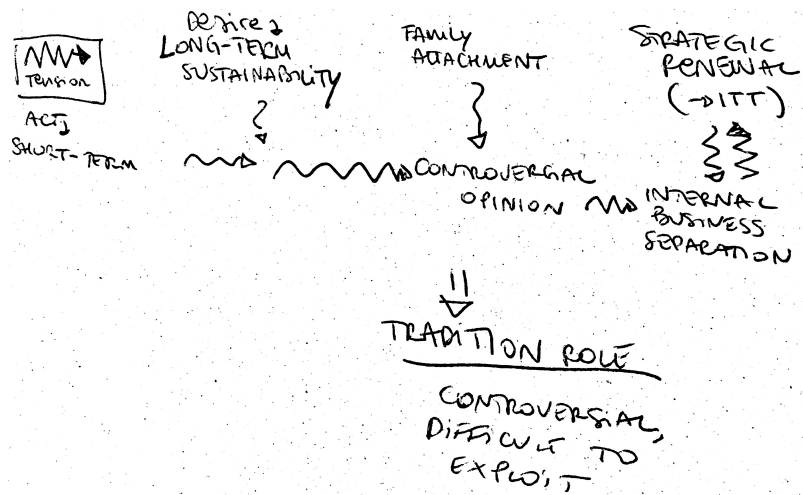 TENSION
ACT
SHORT-TERM
DESIRE
LONG-TERM
SUSTAINABILITY
FAMILY
ATTACHMENT
STRATEGIC
RENEWAL
(→ITT)
CONTROVERSIAL
OPINION
INTERNAL
BUSINESS
SEPARATION
TRADITION ROLE
CONTROVERSIAL,
DIFFICULT TO
EXPLOIT